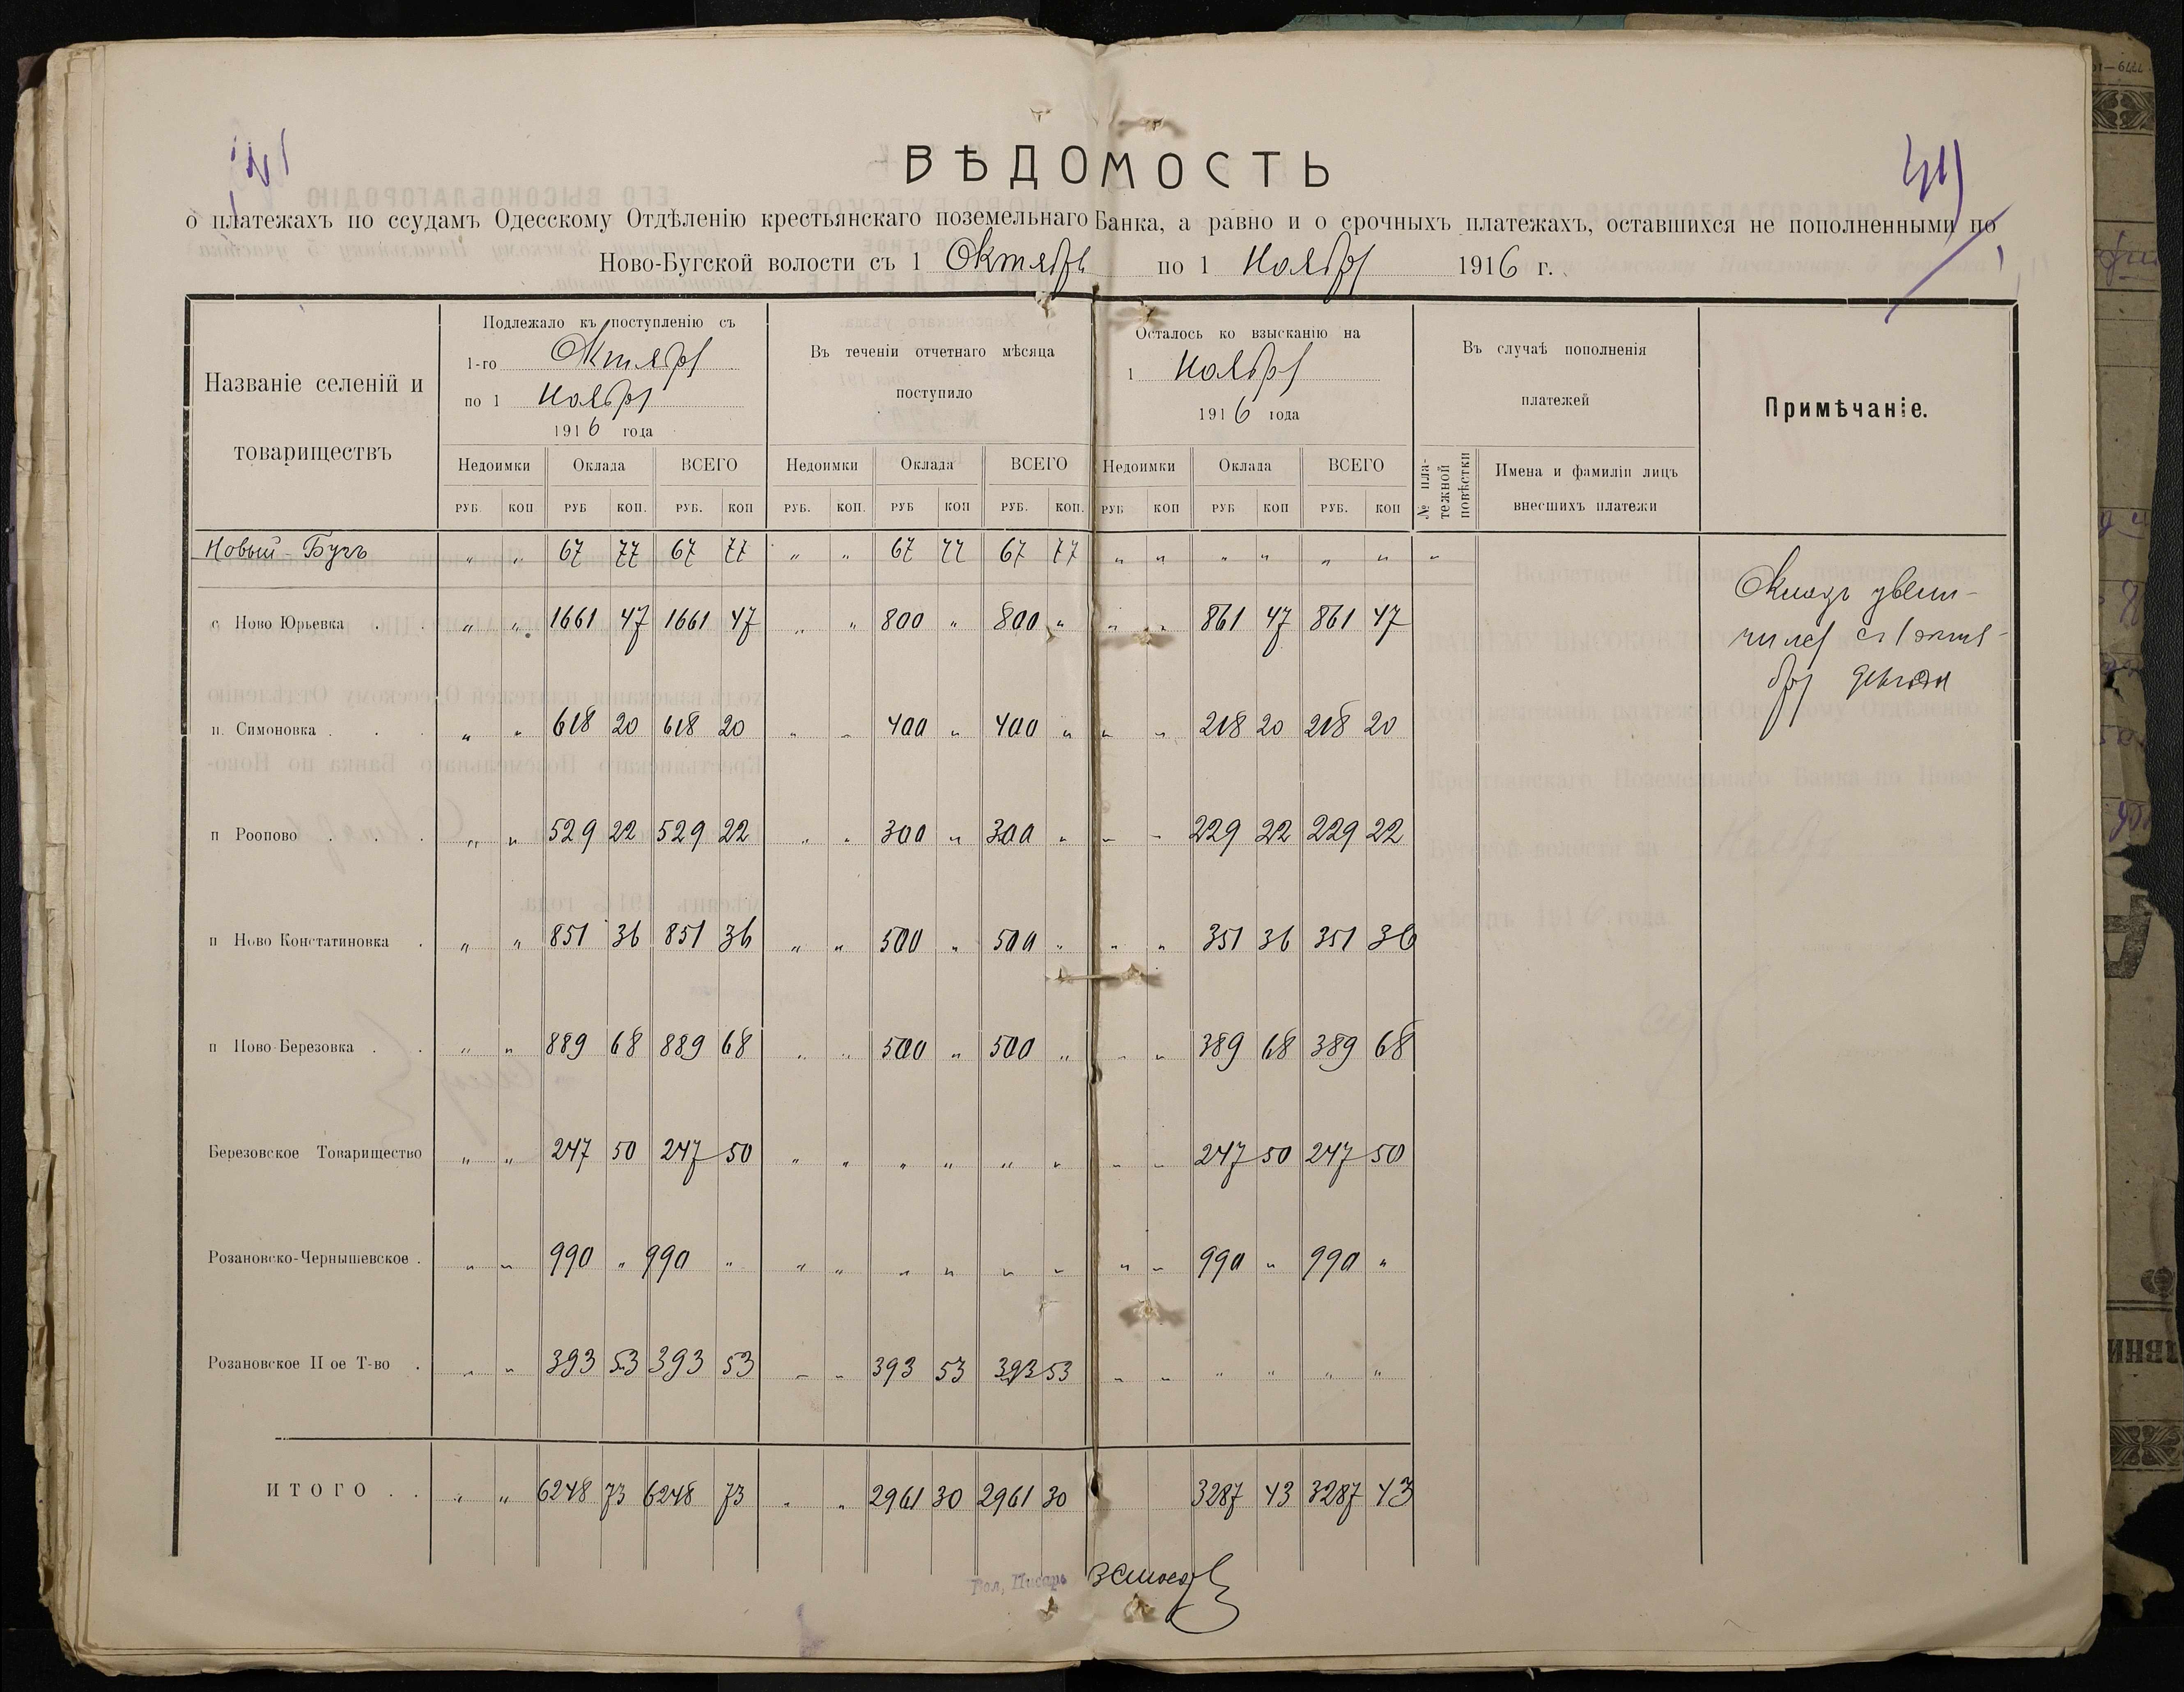 ВѢДОМОСТЬ
о платежахъ по ссудамъ Одесскому Отдѣленію крестьянскаго поземельнаго Банка, а равно и о срочныхъ платежахъ, оставшихся не пополненными по
Ново-Бугской волости съ 1 Октября по 1 Ноября 1916 г.
Названіе селеній и товариществъ
Подлежало къ поступленію съ
1-го Октября
по 1 Ноября
1916 года
Въ теченіи отчетнаго мѣсяца
поступило
Осталось ко взысканію на
1 Ноября
1916 года
Въ случаѣ пополненія
платежей
Примѣчаніе.
Недоимки Оклада ВСЕГО Недоимки Оклада ВСЕГО Недоимки Оклада ВСЕГО
№ пла-
тежной
повѣстки
Имена и фамиліи лицъ
внесшихъ платежи
РУБ. КОП РУБ КОП. РУБ. КОП РУБ. КОП. РУБ КОП РУБ. КОП. РУБ КОП РУБ КОП РУБ. КОП
Новый-Бугъ " " 67 77 67 77 " " 67 77 67 77 " " " " " " "
с Ново Юрьевка . . " " 1661 47 1661 47 " " 800 " 800 " " " 861 47 861 47
п. Симоновка . . . " " 618 20 618 20 " " 400 " 400 " " " 218 20 218 20
п Роопово . . . " " 529 22 529 22 " " 300 " 300 " " " 229 22 229 22
п Ново Констатиновка . " " 851 36 851 36 " " 500 " 500 " " " 351 36 351 36
п Ново-Березовка . . " " 889 68 889 68 " " 500 " 500 " " " 389 68 389 68
Березовское Товарищество " " 247 50 247 50 " " " " " " " " 247 50 247 50
Розановско-Чернышевское . " " 990 " 990 " " " " " " " " " 990 " 990 "
Розановское II ое Т-во . " " 393 53 393 53 " " 393 53 393 53 " " " " " "
ИТОГО . . " " 6248 73 6248 73 " " 2961 30 2961 30 3287 43 3287 43
Окладъ увели-
чился съ 1 октя-
бря
Вол. Писарь